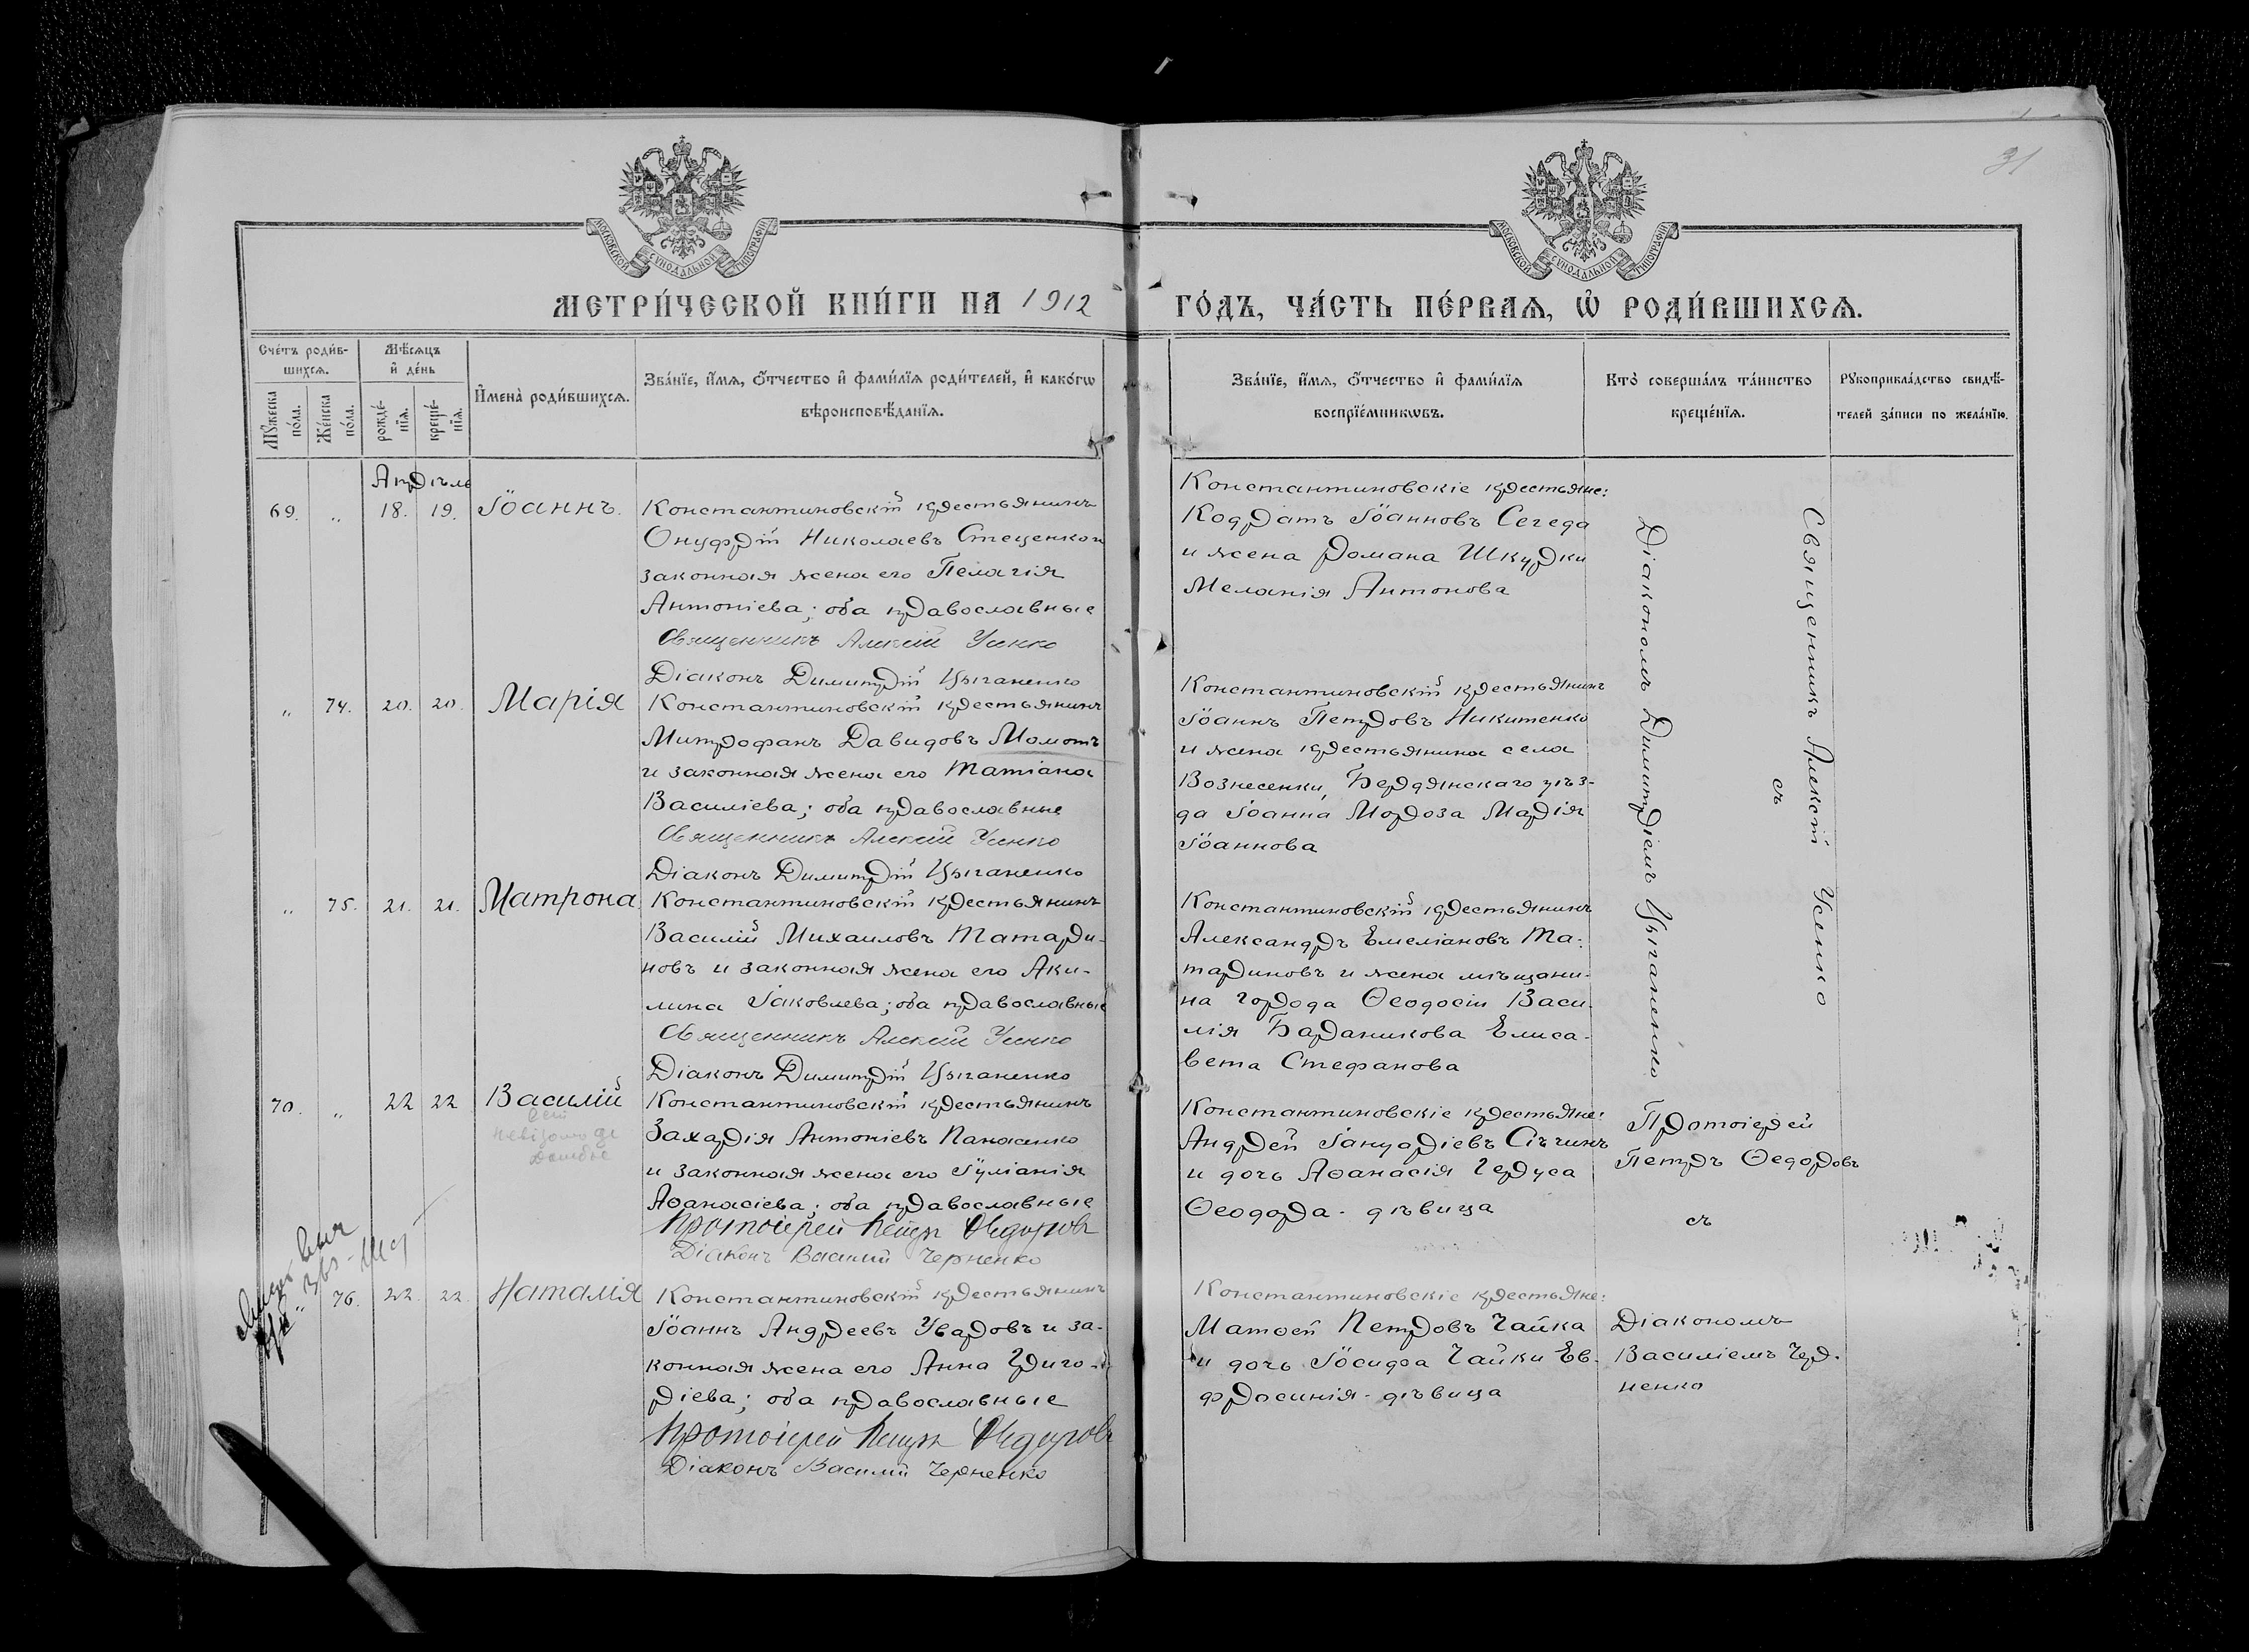 31
МОСКОВСКОЙ СѴНОДАЛЬНОЙ ТИПОГРАФІИ
МОСКОВСКОЙ СѴНОДАЛЬНОЙ ТИПОГРАФІИ
МЕТРИ́ЧЕСКОЙ КНИ́ГИ НА 1912 ГО́ДЪ, ЧА́СТЬ ПЕ́РВАѦ, Ѡ҆ РОДИ́ВШИХСѦ.
Сче́тъ роди́в-
шихсѧ.
Мꙋ́жеска по́ла.
Же́нска по́ла.
Мѣ́сѧцъ
и҆ де́нь
рожде́-
нїѧ.
креще́-
нїѧ.
И҆мена̀ роди́вшихсѧ.
Зва́нїе, и҆́мѧ, ѻ҆́тчество и҆ фами́лїѧ роди́телей, и҆ како́гѡ
вѣроисповѣ́данїѧ.
Зва́нїе, и҆́мѧ, ѻ҆́тчество и҆ фами́лїѧ
воспрїе́мникѡвъ.
Кто̀ соверша́лъ та́инство
креще́нїѧ.
Рꙋкоприкла́дство свидѣ́-
телей за́писи по жела́нїю.
Апрѣль
69. " 18. 19. Іоаннъ.
Константиновскій крестьянинъ
Онуфрій Николаевъ Стеценко и
законная жена его Пелагія
Антоніева; оба православные
Священникъ Алексій Усенко
Діаконъ Димитрій Цыганенко
Константиновскіе крестьяне:
Кодратъ Іоанновъ Сегеда
и жена Романа Шкурки
Меланія Антонова
Діакономъ Димитріемъ Цыганенко
съ
Священникъ Алексій Усенко
" 74. 20. 20. Марія
Константиновскій крестьянинъ
Митрофанъ Давидовъ Момотъ
и законная жена его Татіана
Василіева; оба православные
Священникъ Алексій Усенко
Діаконъ Димитрій Цыганенко
Константиновскій крестьянинъ
Іоаннъ Петровъ Никитенко
и жена крестьянина села
Вознесенки, Бердянскаго уѣз-
да Іоанна Мороза Марія
Іоаннова
" 75. 21. 21. Матрона
Константиновскій крестьянинъ
Василій Михаиловъ Татари-
новъ и законная жена его Аки-
лина Іаковлева; оба православные
Священникъ Алексій Усенко
Діаконъ Димитрій Цыганенко
Константиновскій крестьянинъ
Александръ Емеліановъ Та-
тариновъ и жена мѣщани-
на города Ѳеодосіи Васи-
лія Баранникова Елиса-
вета Стефанова
70. " 22 22 Василій
Константиновскій крестьянинъ
Захарія Антоніевъ Панасенко
и законная жена его Іуліанія
Аѳанасіева; оба православные
Протоіерей Петръ Ѳедоровъ
Діаконъ Василій Черненко
Константиновскіе крестьяне:
Андрей Іануаріевъ Сѣчинъ
и дочь Аѳанасія Геруса
Ѳеодора - дѣвица
Протоіерей
Петръ Ѳедоровъ
съ
" 76. 22. 22. Наталія
Константиновскій крестьянинъ
Іоаннъ Андреевъ Уваровъ и за-
конная жена его Анна Григо-
ріева; оба православные
Протоіерей Петръ Ѳедоровъ
Діаконъ Василій Черненко
Константиновскіе крестьяне:
Матѳей Петровъ Чайка
и дочь Іосифа Чайки Ев-
фросинія - дѣвица
Діакономъ
Василіемъ Чер-
ненко